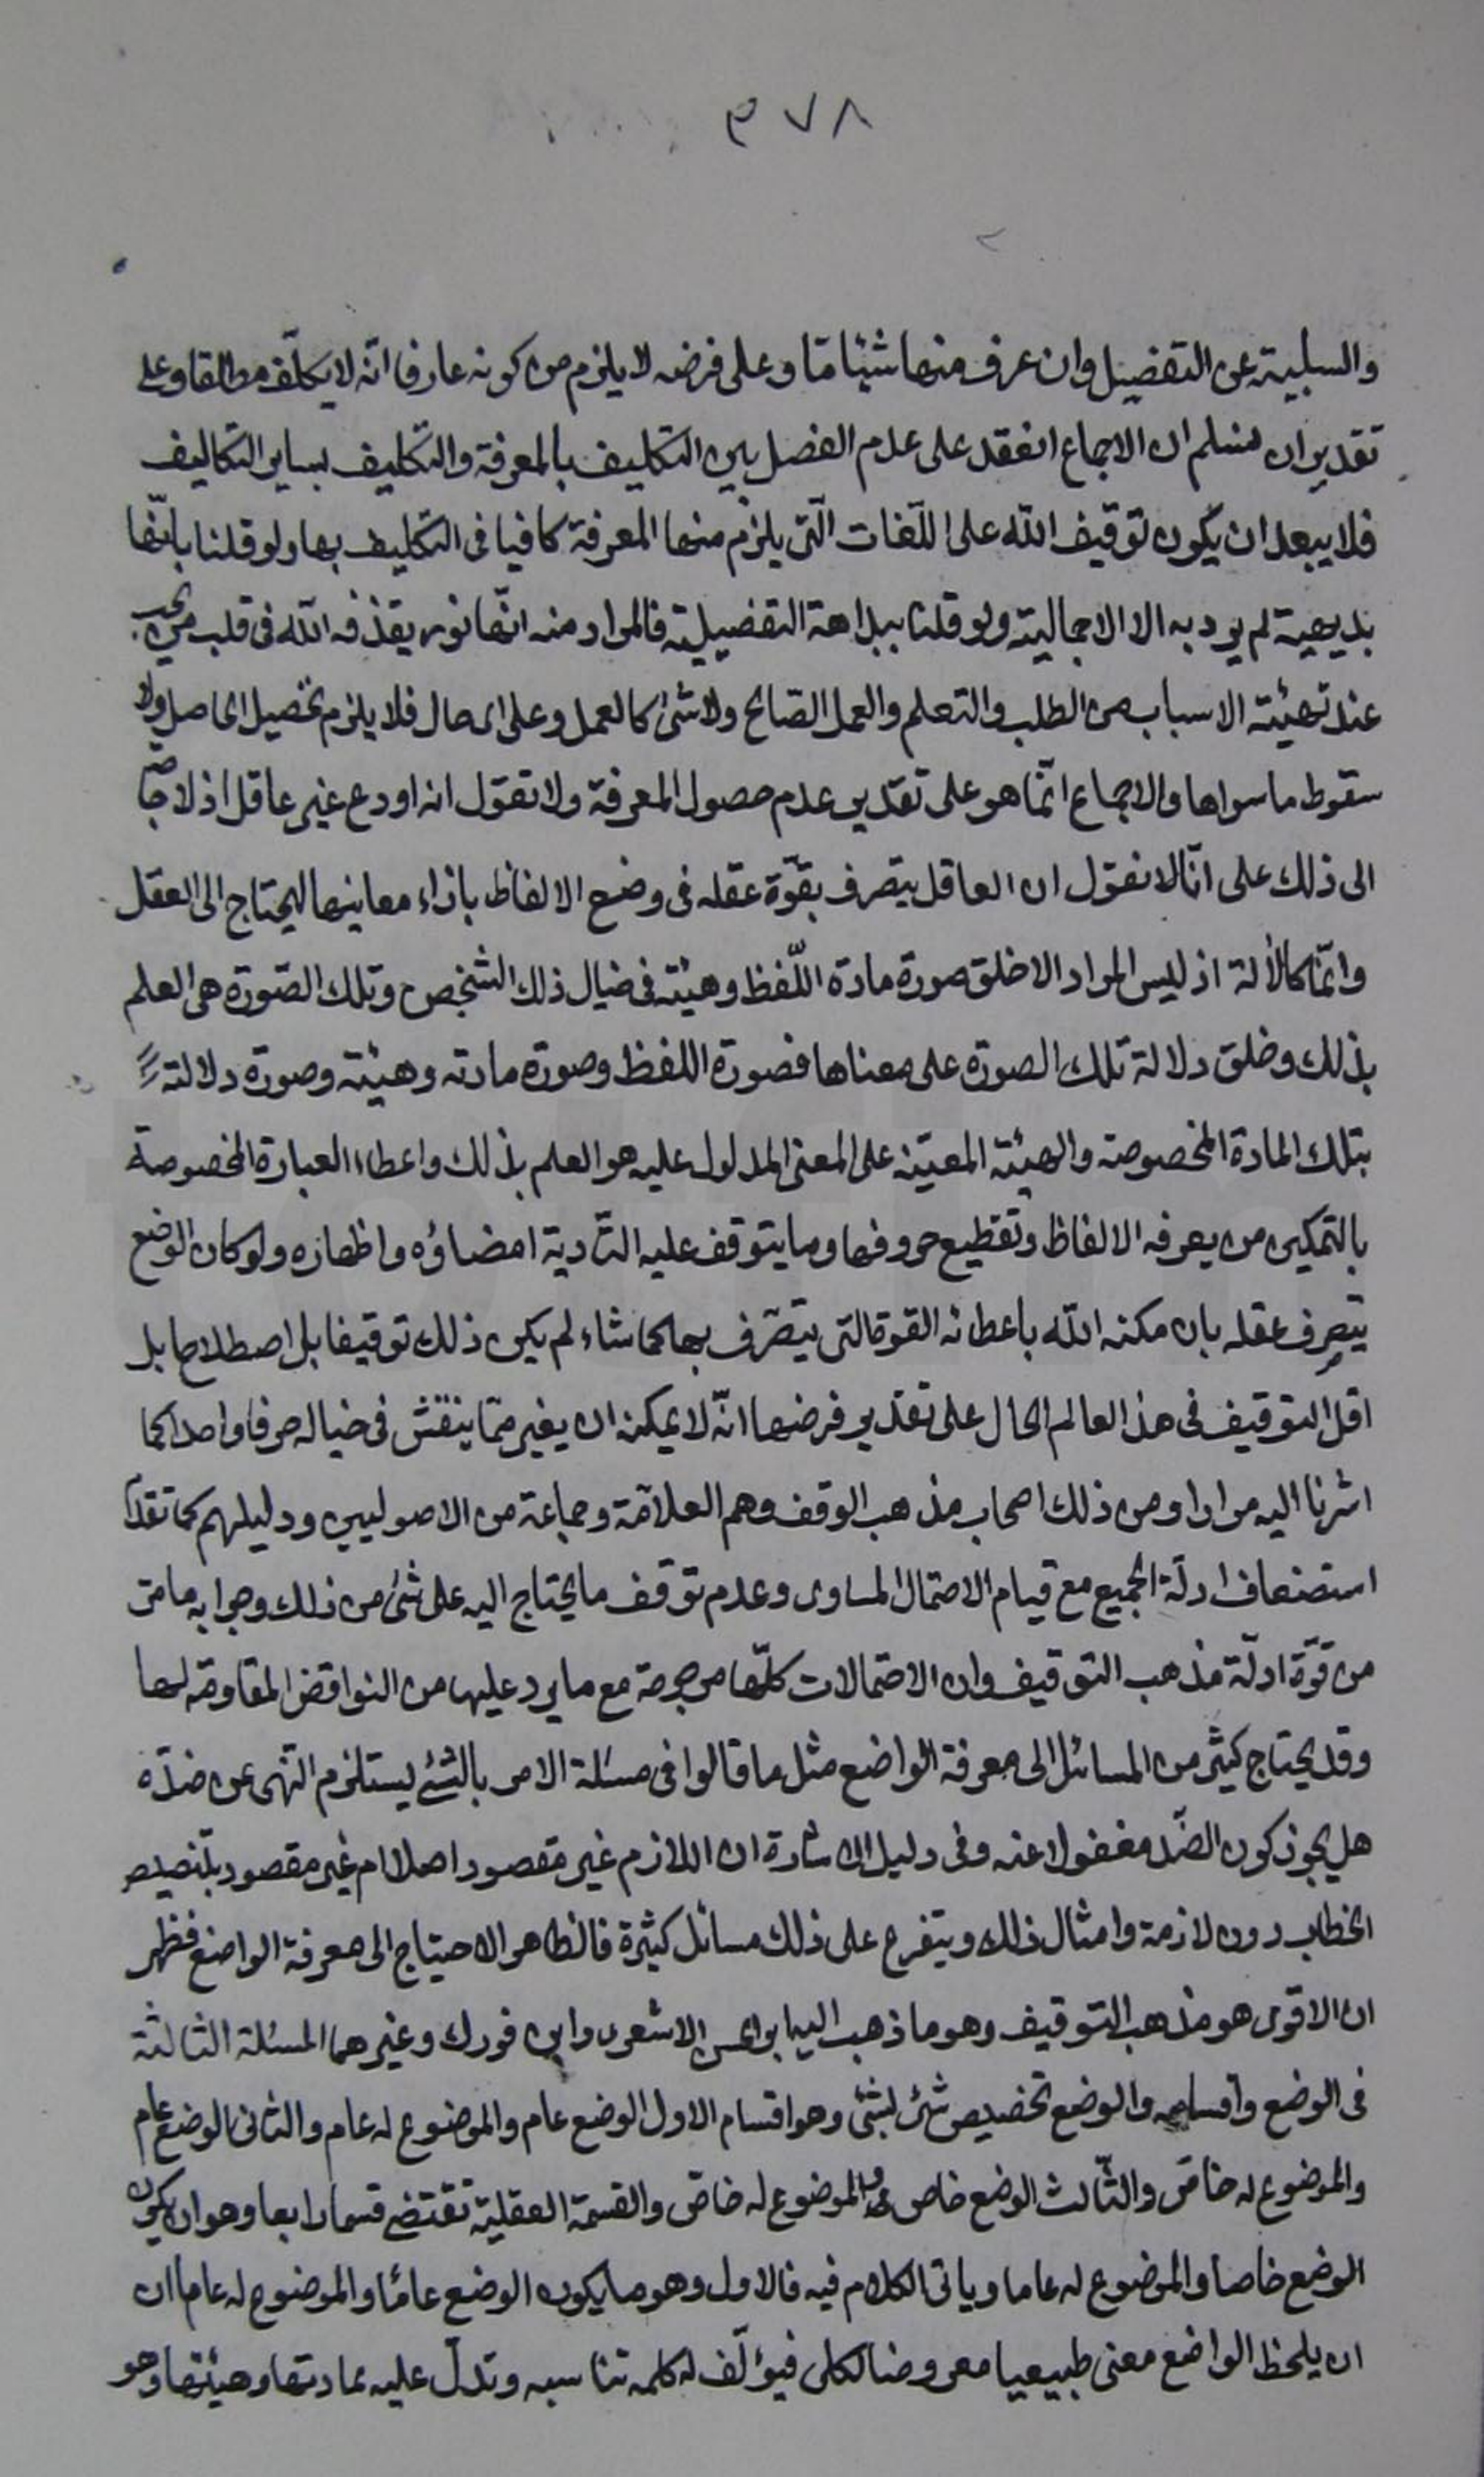 ٣٧٨
والسلبية عن التفصيل وان عرف منها شيئا ما وعلى فرضه لا يلزم من كونه عارفا انّه لا يكلّف مطلقا وعلى
تقدير ان نسلم ان الاجماع انعقد على عدم الفصل بين التكليف بالمعرفة والتكليف بساير التكاليف
فلا يبعد ان يكون توقيف اللّه على اللّغات الّتى يلزم منها المعرفة كافيا فى التكليف بها ولو قلنا بانّها
بديهية لم يرد به الا الاجمالية ولو قلنا ببداهة التفصيلية فالمراد منه انّها نور يقذفه اللّه فى قلب من يحب
عند تهيئة الاسباب من الطلب والتعلم والعمل الصّالح ولا شئ كالعمل وعلى اى حال فلا يلزم تحصيل الحاصل ولا
سقوط ما سواها والاجماع انّما هو على تقدير عدم حصول المعرفة ولا نقول انه اودع غير عاقل اذ لا حاجة
الى ذلك على انّا لا نقول ان العاقل يتصرف بقوّة عقله فى وضع الالفاظ بازاء معانيها ليحتاج الى العقل
وانّما كالألة اذ ليس المراد الا خلق صورة مادة اللّفظ وهيئته فى خيال ذلك الشخص وتلك الصّورة هى العلم
بذلك وخلق دلالة تلك الصورة على معناها فصورة اللفظ وصورة مادته وهيئته وصورة دلالته
بتلك المادة المخصوصة والهيئة المعيّنة على المعنى المدلول عليه هو العلم بذلك واعطاء العبارة المخصوصة
بالتمكين من يعرفه الالفاظ وتقطيع حروفها وما يتوقف عليه التّادية امضاؤه واظهاره ولو كان الوضع
يتصرف عقله بان مكنه اللّه باعطائه القوة التى يتصّرف بها كما شاء لم يكن ذلك توقيفا بل اصطلاحا بل
اقل التوقيف فى هذ العالم الحال على تقدير فرضها انّه لا يمكنه ان يغير ممّا ينقش فى خياله حرفا واحدا كما
اشرنا اليه مرارا ومن ذلك اصحاب مذهب الوقف وهم العلاّمة وجماعة من الاصوليين ودليلهم كما تقدّم
استضعاف ادلّة الجميع مع قيام الاحتمال المساوى وعدم توقف ما يحتاج اليه على شئ من ذلك وجوابه ما مرّ
من قوّة ادلّة مذهب التوقيف وان الاحتمالات كلّها مرجوحة مع ما يرد عليها من النواقض المقاومة لها
وقد يحتاج كثير من المسائل الى معرفة الواضع مثل ما قالوا فى مسئلة الامر بالشئ يستلزم النّهى عن ضدّه
هل يجوز كون الضّد مغفولا عنه وفى دليل الاشارة ان اللازم غير مقصود اصلا ام غير مقصود بتنصيص
الخطاب دون لازمة وامثال ذلك ويتفرع على ذلك مسائل كثيرة فالظاهر الاحتياج الى معرفة الواضع فظهر
ان الاقوى هو مذهب التوقيف وهو ما ذهب اليه ابو الحسن الاشعرى وابن فورك وغيرهما المسئلة الثالثة
فى الوضع واقسامه والوضع تخصيص شئ بشئ وهو اقسام الاول الوضع عام والموضوع له عام والثانى الوضع عام
والموضوع له خاصّ والثّالث الوضع خاص والموضوع له خاصّ والقسمة العقلية تقتضى قسما رابعا وهو ان يكون
الوضع خاصا والموضوع له عاما وياتى الكلام فيه فالاول وهو ما يكون الوضع عامّا والموضوع له عاما ان
ان يلحظ الواضع معنى طبيعيا معروضا لكلى فيؤلّف له كلمه تناسبه وتدلّ عليه بمادتها وهيئتها وهو